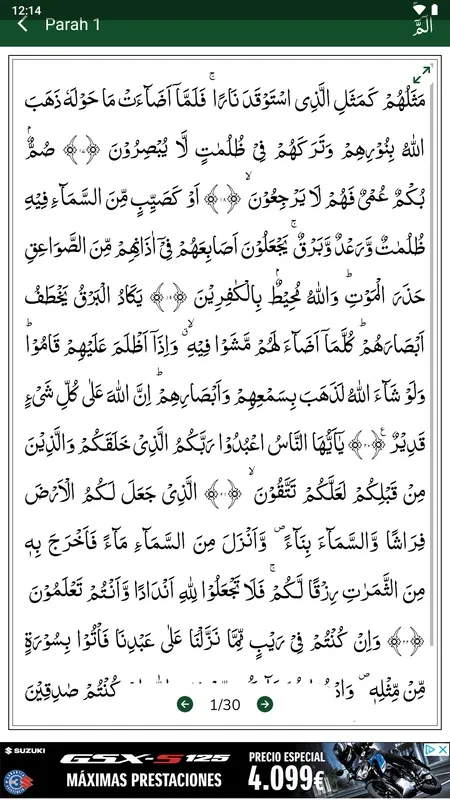 12:14
Parah 1
الٓمّٓ
مَثَلُهُمْ كَمَثَلِ الَّذِی اسْتَوْقَدَ نَارًاۚ فَلَمَّاۤ اَضَآءَتْ مَا حَوْلَهٗ ذَهَبَ
اللّٰهُ بِنُوْرِهِمْ وَتَرَكَهُمْ فِیْ ظُلُمٰتٍ لَّا یُبْصِرُوْنَ ﴿۱۷﴾ صُمٌّۢ
بُكْمٌ عُمْیٌ فَهُمْ لَا یَرْجِعُوْنَۙ ﴿۱۸﴾ اَوْ كَصَیِّبٍ مِّنَ السَّمَآءِ فِیْهِ
ظُلُمٰتٌ وَّرَعْدٌ وَّبَرْقٌۚ یَجْعَلُوْنَ اَصَابِعَهُمْ فِیْۤ اٰذَانِهِمْ مِّنَ الصَّوَاعِقِ
حَذَرَ الْمَوْتِؕ وَاللّٰهُ مُحِیْطٌۢ بِالْكٰفِرِیْنَ ﴿۱۹﴾ یَكَادُ الْبَرْقُ یَخْطَفُ
اَبْصَارَهُمْؕ كُلَّمَاۤ اَضَآءَ لَهُمْ مَّشَوْا فِیْهِۙۗ وَاِذَاۤ اَظْلَمَ عَلَیْهِمْ قَامُوْاؕ
وَلَوْ شَآءَ اللّٰهُ لَذَهَبَ بِسَمْعِهِمْ وَاَبْصَارِهِمْؕ اِنَّ اللّٰهَ عَلٰی كُلِّ شَیْءٍ
قَدِیْرٌ۠ ﴿۲۰﴾ یٰۤاَیُّهَا النَّاسُ اعْبُدُوْا رَبَّكُمُ الَّذِیْ خَلَقَكُمْ وَالَّذِیْنَ
مِنْ قَبْلِكُمْ لَعَلَّكُمْ تَتَّقُوْنَۙ ﴿۲۱﴾ الَّذِیْ جَعَلَ لَكُمُ الْاَرْضَ
فِرَاشًا وَّالسَّمَآءَ بِنَآءً۪ وَّاَنْزَلَ مِنَ السَّمَآءِ مَآءً فَاَخْرَجَ بِهٖ
مِنَ الثَّمَرٰتِ رِزْقًا لَّكُمْۚ فَلَا تَجْعَلُوْا لِلّٰهِ اَنْدَادًا وَّاَنْتُمْ تَعْلَمُوْنَ
﴿۲۲﴾ وَاِنْ كُنْتُمْ فِیْ رَیْبٍ مِّمَّا نَزَّلْنَا عَلٰی عَبْدِنَا فَاْتُوْا بِسُوْرَةٍ
مِّنْ مِّثْلِهٖ۪ كُنْتُمْ صٰدِقِیْنَ
1/30
SUZUKI GSX-S 125
MÁXIMAS PRESTACIONES
PRECIO ESPECIAL
4.099€